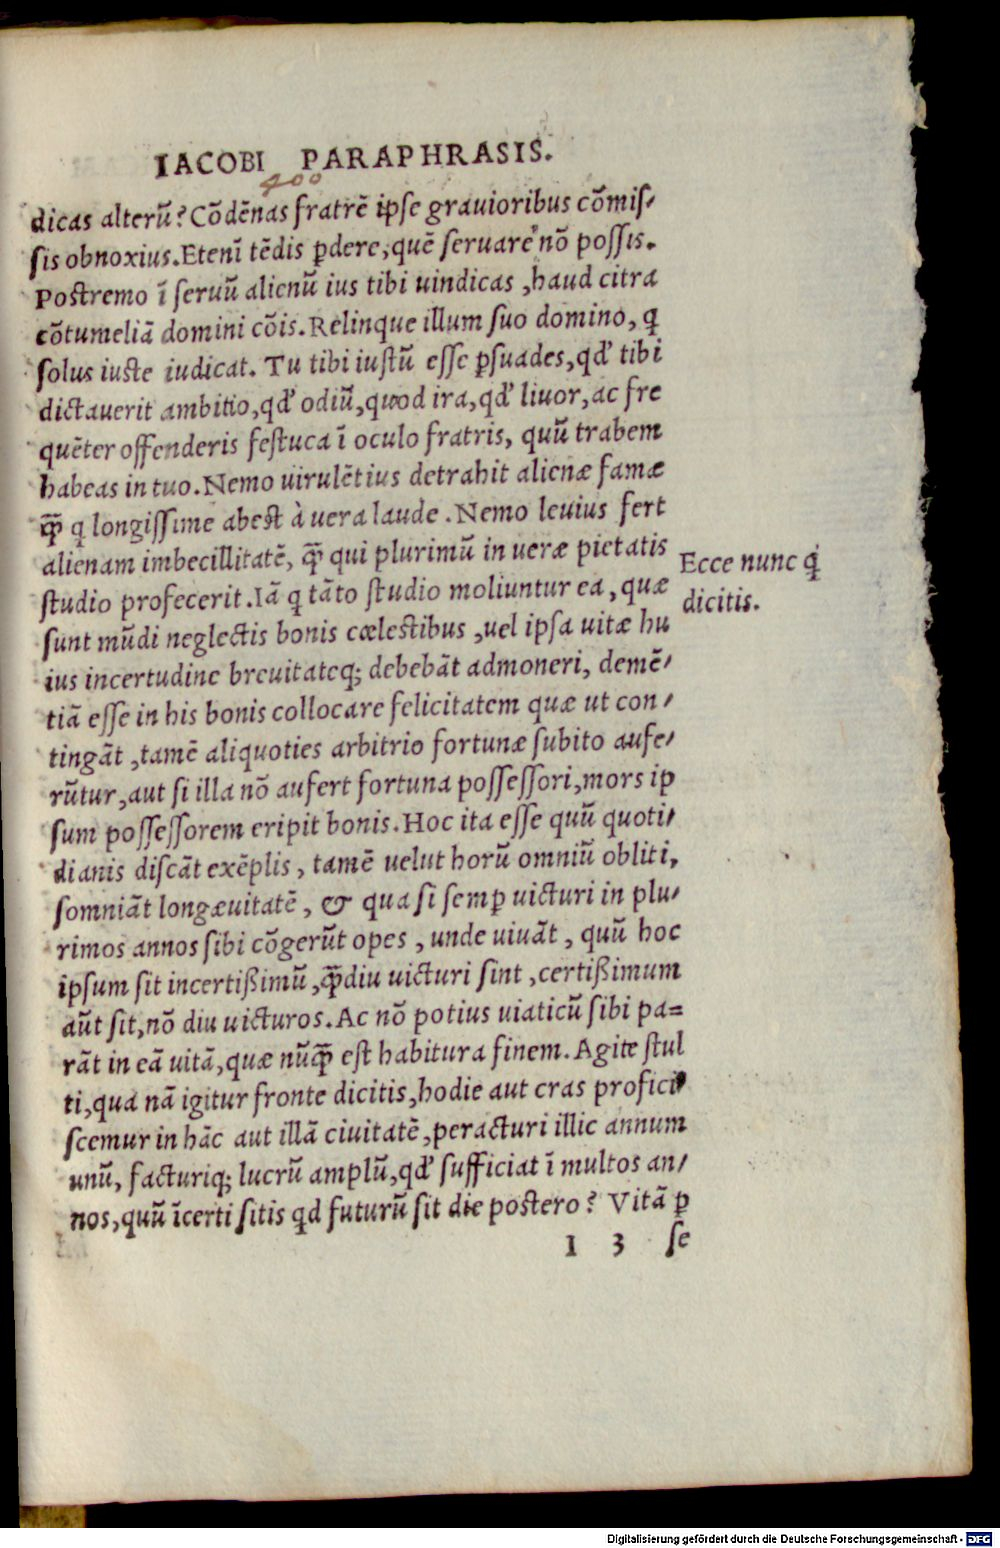 IACOBI PARAPHRASIS.
400
dicas alterũ? Cõdẽnas fratrẽ ipse grauioribus cõmis/
sis obnoxius. Etenĩ tẽdis ꝑdere, quẽ seruare nõ possis.
Postremo ĩ seruũ alienũ ius tibi uindicas, haud citra
cõtumeliã domini cõis. Relinque illum suo domino, q
solus iuste iudicat. Tu tibi iustũ esse ꝑsuades, qđ tibi
dictauerit ambitio, qđ odiũ, quod ira, qđ liuor, ac fre
quẽter offenderis festuca ĩ oculo fratris, quũ trabem
habeas in tuo. Nemo uirulẽtius detrahit alienæ famæ
q̃ꝑ q longissime abest à uera laude. Nemo leuius fert
alienam imbecillitatẽ, q̃ꝑ qui plurimũ in ueræ pietatis
studio profecerit. Iã q tãto studio moliuntur ea, quæ
sunt mũdi neglectis bonis cœlestibus, uel ipsa uitæ hu
ius incertudine breuitateq; debebãt admoneri, demẽ/
tiã esse in his bonis collocare felicitatem quæ ut con/
tingãt, tamẽ aliquoties arbitrio fortunæ subito aufe/
rũtur, aut si illa nõ aufert fortuna possessori, mors ip
sum possessorem eripit bonis. Hoc ita esse quũ quoti/
dianis discãt exẽplis, tamẽ uelut horũ omniũ obliti,
somniãt longæuitatẽ, & qua si semꝑ uicturi in plu/
rimos annos sibi cõgerũt opes, unde uiuãt, quũ hoc
ipsum sit incertißimũ, q̃ꝑdiu uicturi sint, certißimum
aũt sit, nõ diu uicturos. Ac nõ potius uiaticũ sibi pa=
rãt in eã uitã, quæ nũq̃ꝑ est habitura finem. Agite stul
ti, qua nã igitur fronte dicitis, hodie aut cras profici/
scemur in hãc aut illã ciuitatẽ, peracturi illic annum
unũ, facturiq; lucrũ amplũ, qđ sufficiat ĩ multos an/
nos, quũ ĩcerti sitis qd futurũ sit die postero? Vitã ꝑ
l 3 se
Ecce nunc q
dicitis.
Digitalisierung gefördert durch die Deutsche Forschungsgemeinschaft - DFG